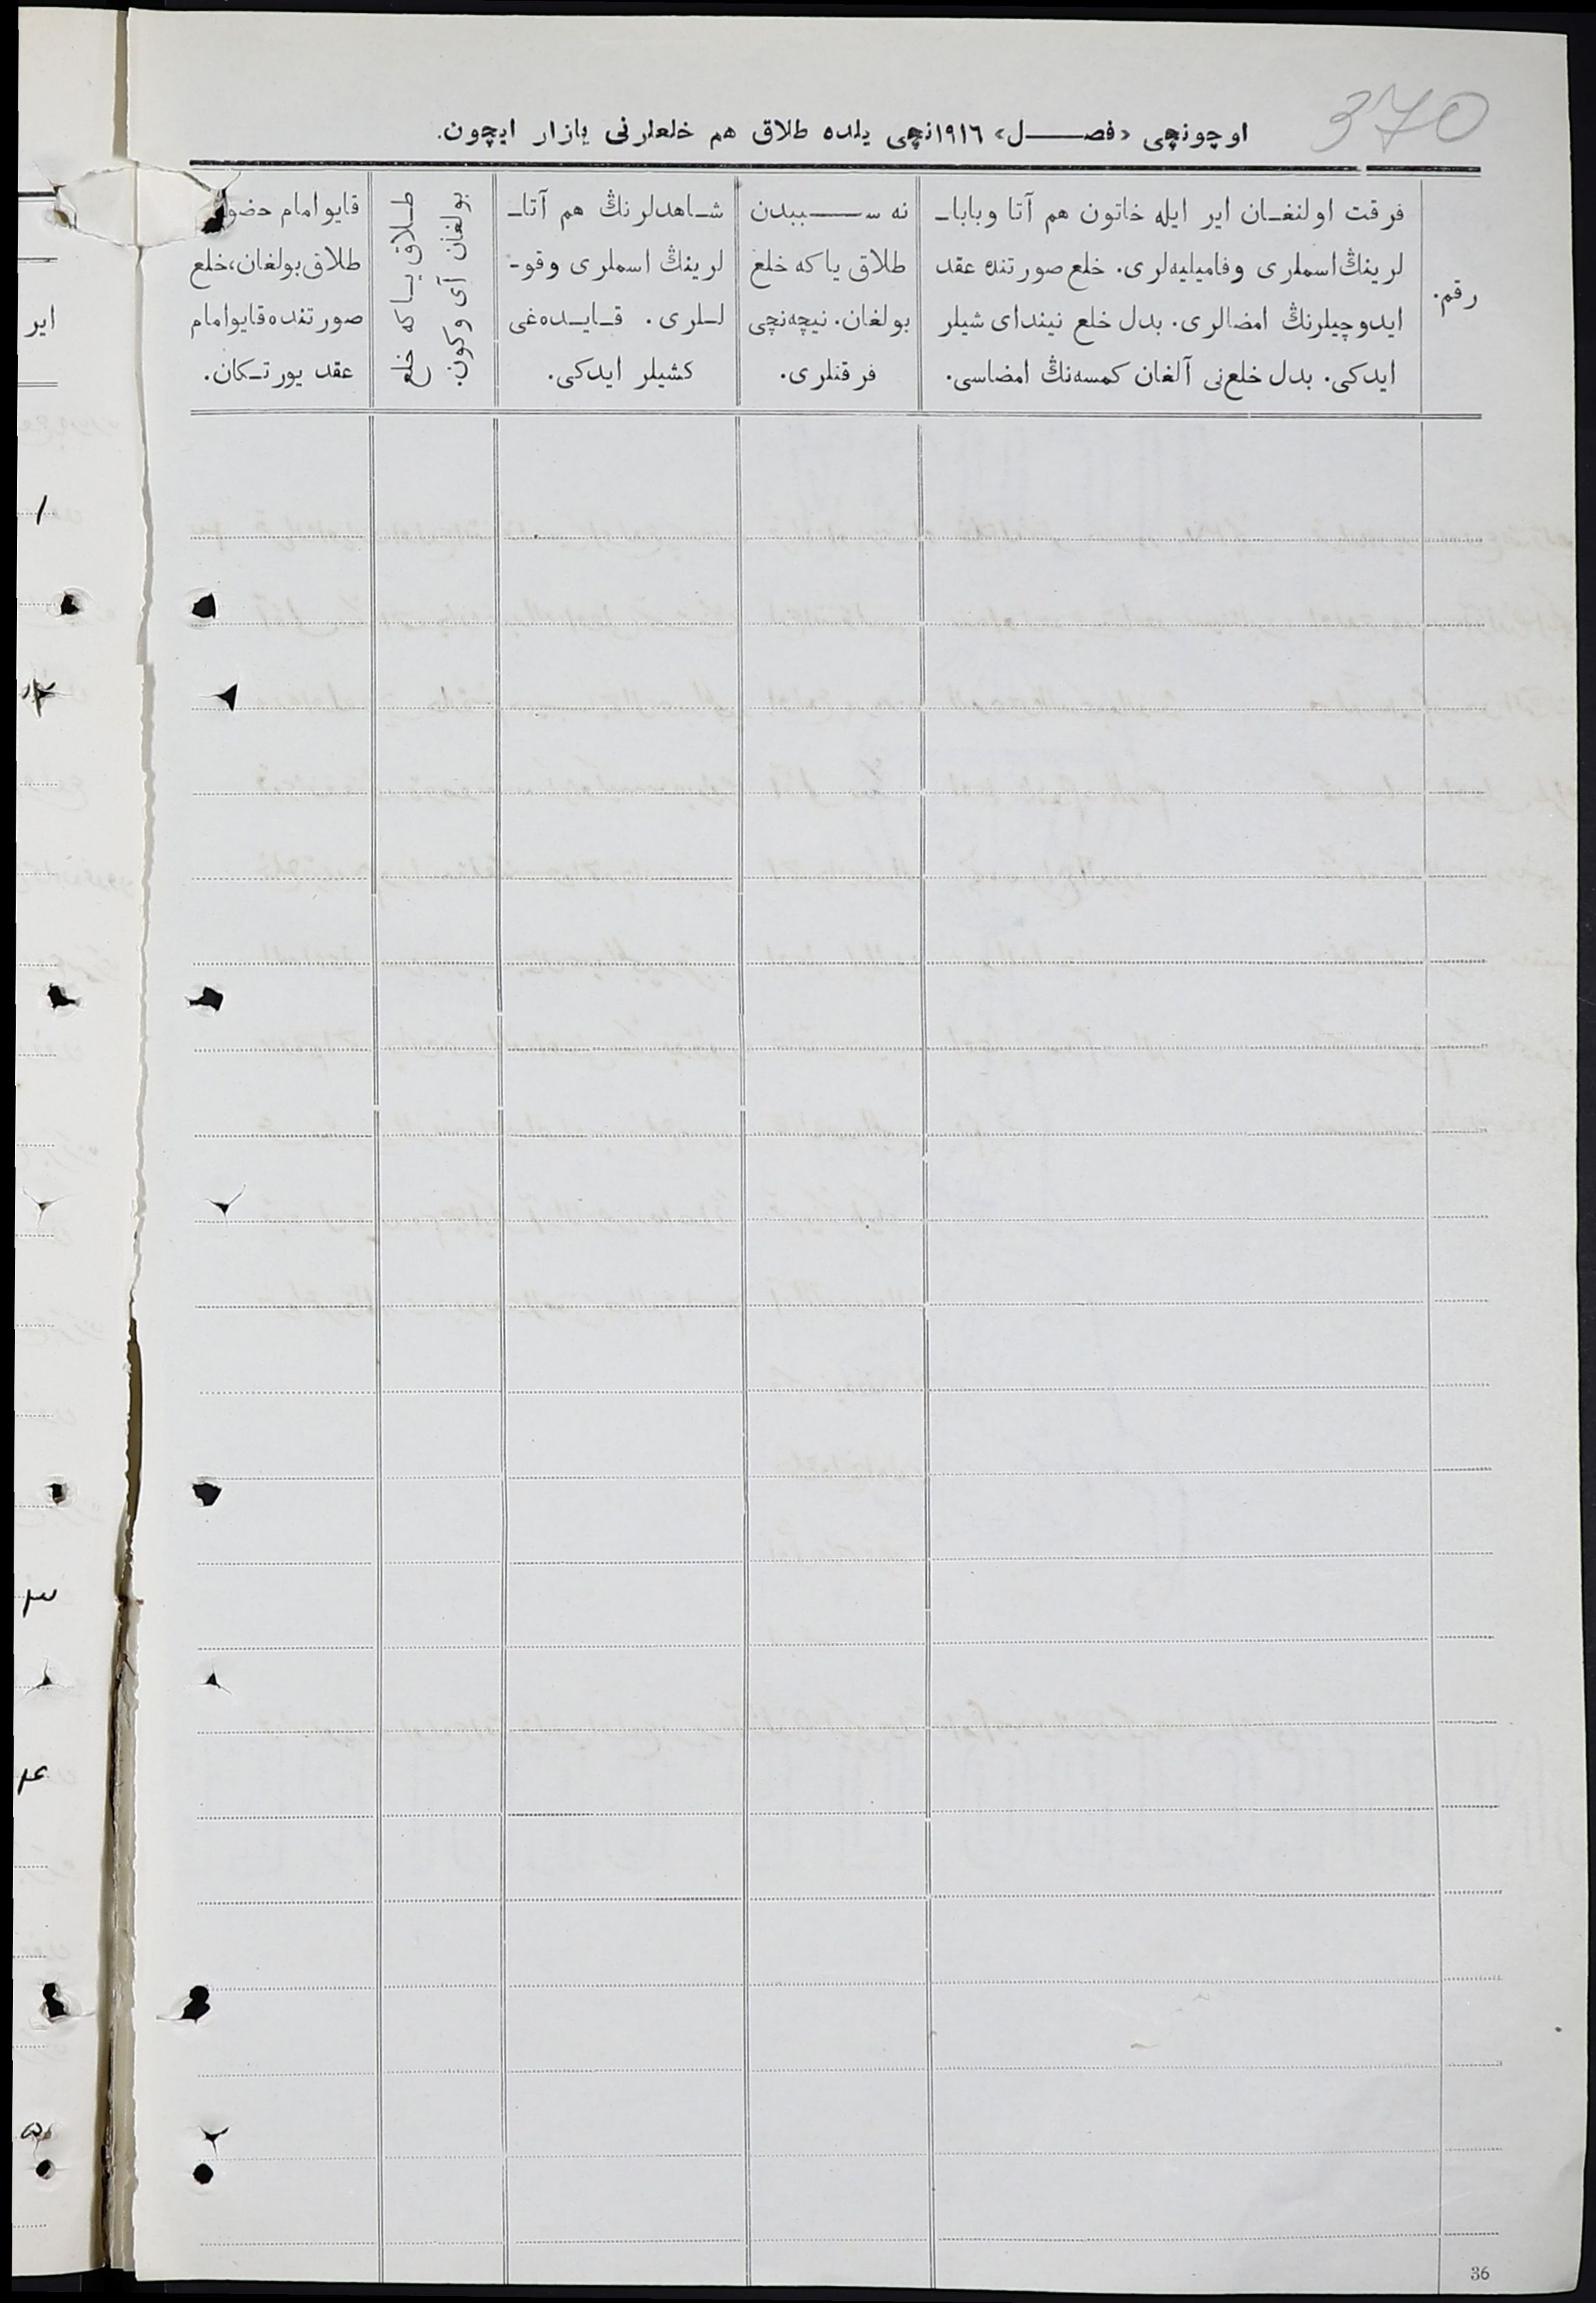 370
اوچونچی «فصل» ١٩١٦نچی یلده طلاق هم خلعلرنی یازار ایچون.
رقم.
فرقت اولنغان ایر ایله خاتون هم آتا وبابا-
لرینڭ اسملری وفامیلیه‌لری. خلع صورتنده عقد
ایدوچیلرنڭ امضالری. بدل خلع نیندای شیلر
ایدکی. بدل خلع‌نی آلغان کمسه‌نڭ امضاسی.
نه سببدن
طلاق یاکه خلع
بولغان. نیچه‌نچی
فرقتلری.
شاهدلرنڭ هم آتا-
لرینڭ اسملری وقو-
للری. قایده‌غی
کشیلر ایدکی.
طلاق یاکه خلع
بولغان آی وکون.
قایو امام حضو
طلاق بولغان، خلع
صورتنده قایو امام
عقد یورتکان.
ایر
١
٢
٣
۴
۵
36